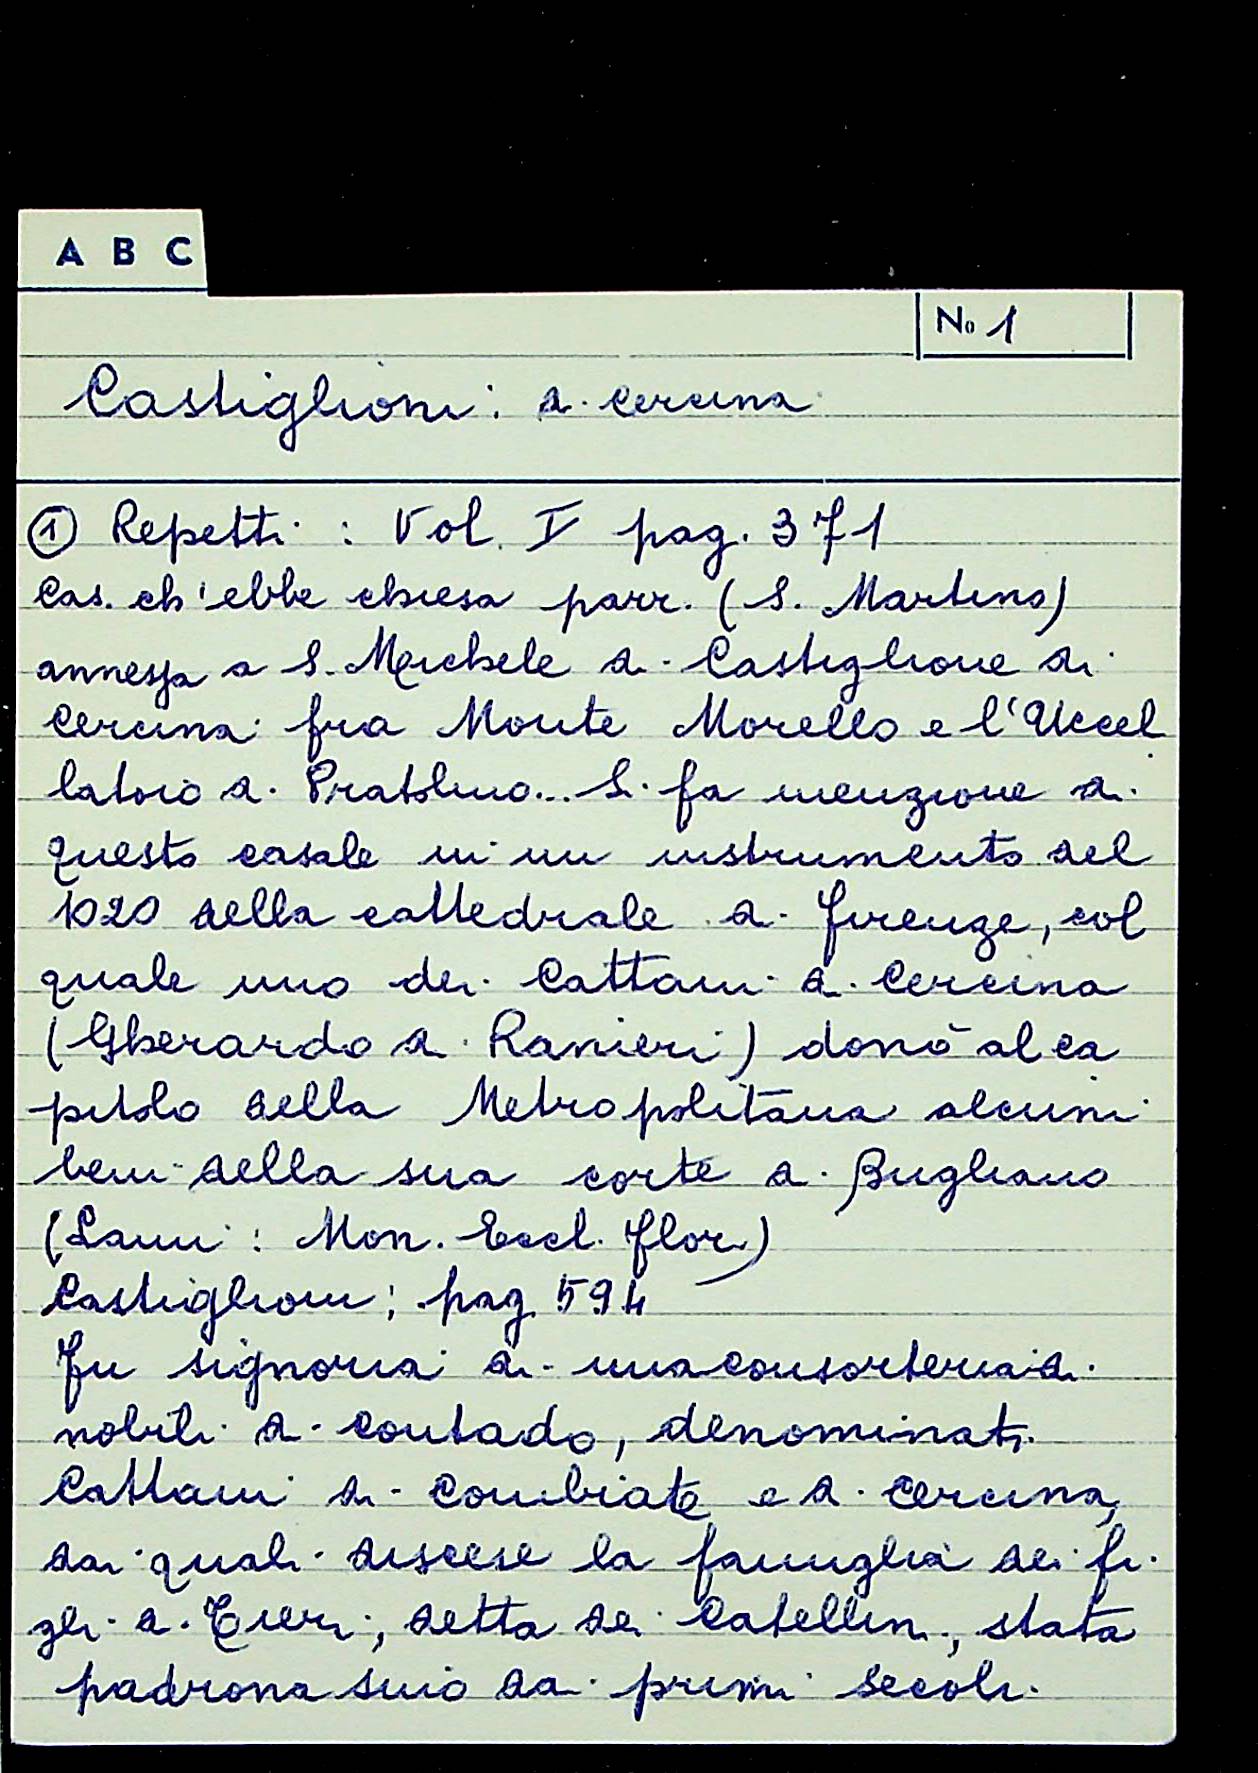 A B C
No 1
Castiglioni: di Cercina
① Repetti: Vol. V pag. 371
Cas. ch'ebbe chiesa parr. (S. Martino)
annessa a S. Michele di Castiglione di
Cercina fra Monte Morello e l'Uccel
latoio di Pratolino... Si fa menzione di
questo casale in un instrumento del
1020 della cattedrale di Firenze, col
quale uno dei Cattani di Cercina
(Gherardo di Ranieri) donò al ca
pitolo della Metropolitana alcuni
beni della sua corte di Bugliano
(Lami: Mon. Eccl. Flor.)
Castiglioni; pag 594
Fu signoria di una consorteria di
nobili di contado, denominati
Cattani di Combiate e di Cercina,
dai quali discese la famiglia dei fi
gli di Tieri, detta dei Catellini, stata
padrona sino dai primi secoli